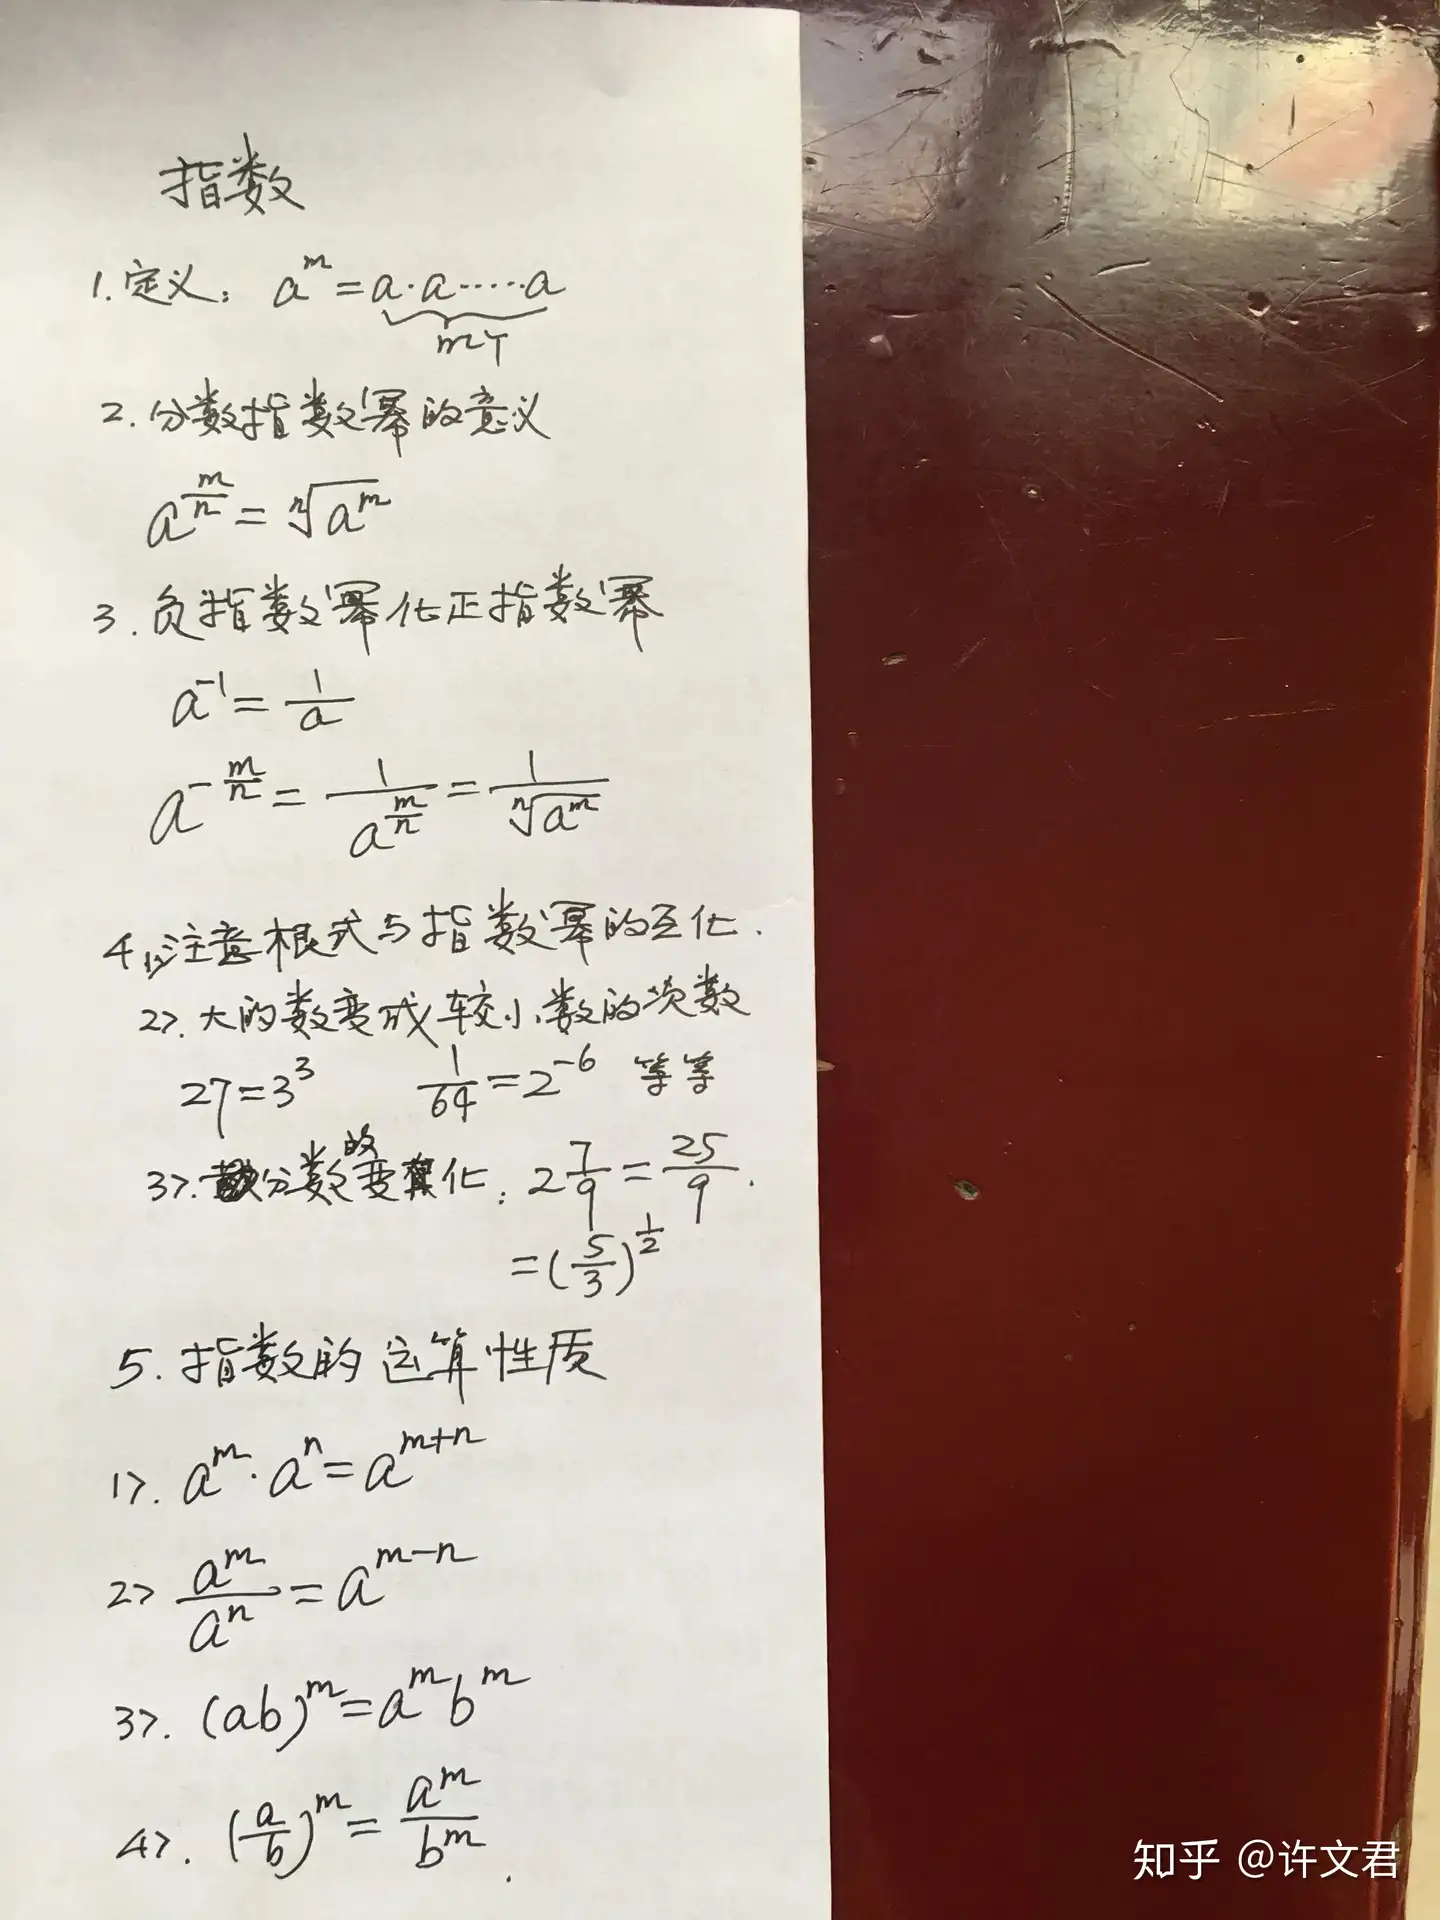 指数
1.定义: a^m=a·a·····a
m个
2.分数指数幂的意义
a^(m/n)=ⁿ√(a^m)
3.负指数幂化正指数幂
a^(-1)=1/a
a^(-m/n)=1/a^(m/n)=1/ⁿ√(a^m)
4.1>注意根式与指数幂的互化.
2>.大的数变成较小数的次数
27=3^3 1/64=2^(-6) 等等
3>.分数的变化: 2 7/9=25/9.
=(5/3)^(1/2)
5.指数的运算性质
1>. a^m·a^n=a^(m+n)
2> a^m/a^n=a^(m-n)
3>. (ab)^m=a^m b^m
4>. (a/b)^m=a^m/b^m.
知乎 @许文君